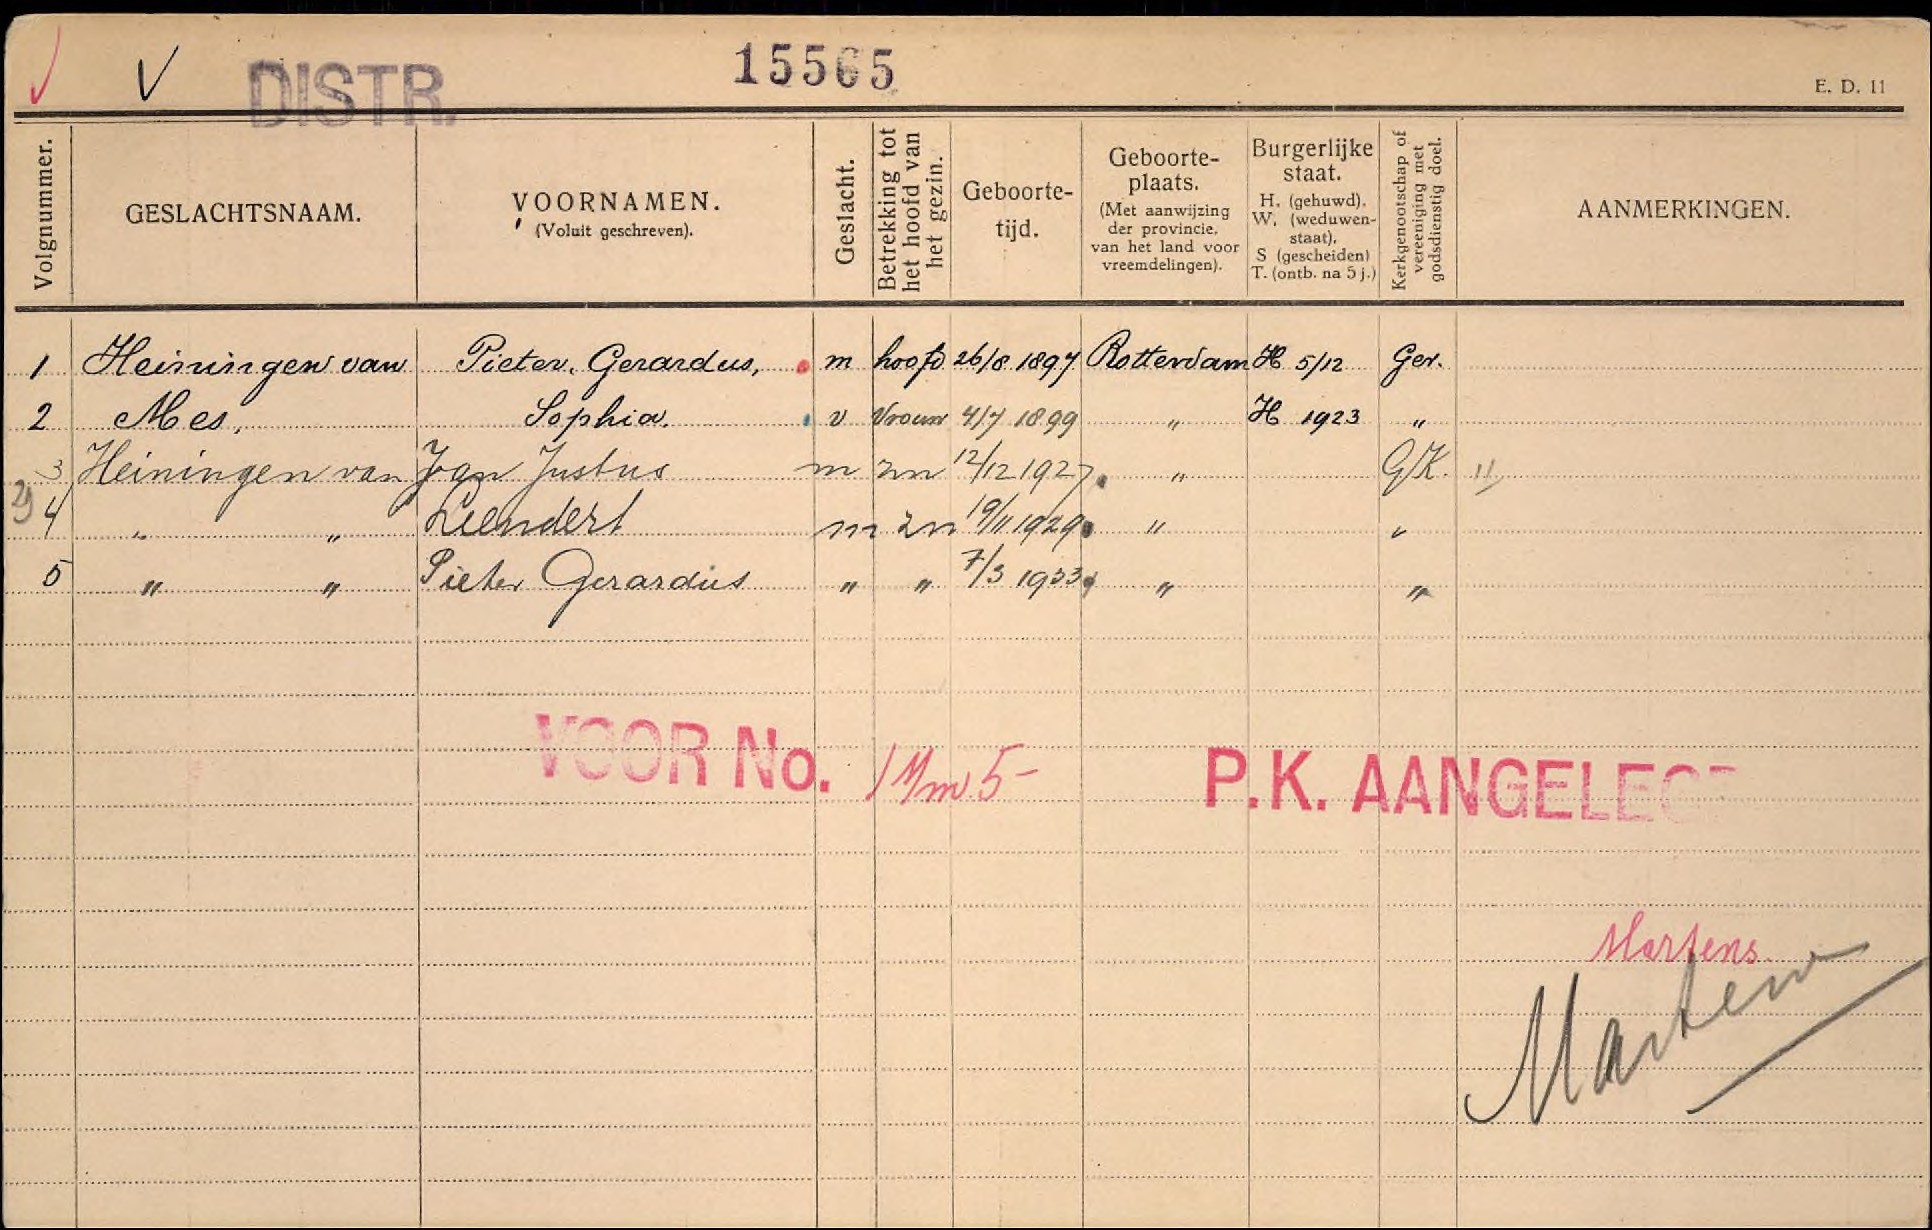 √ V DISTR. 15565 E. D. 11
Volgnummer.
GESLACHTSNAAM.
VOORNAMEN.
(Voluit geschreven).
Geslacht.
Betrekking tot
het hoofd van
het gezin.
Geboorte-
tijd.
Geboorte-
plaats.
(Met aanwijzing
der provincie,
van het land voor
vreemdelingen).
Burgerlijke
staat.
H. (gehuwd).
W. (weduwen-
staat).
S (gescheiden)
T. (ontb. na 5 j.)
Kerkgenootschap of
vereeniging met
godsdienstig doel.
AANMERKINGEN.
1 Heiningen van Pieter, Gerardus, m hoofd 26/8 1897 Rotterdam H 5/12 Ger.
2 Mes, Sophia. v Vrouw 4/7 1899 " H 1923 "
3 Heiningen van Jan Justus m zn 12/12 1927 " G/K. 11
29
4 " " Leendert m zn 19/11 1929 " "
5 " " Pieter Gerardus " " 7/3 1933 " "
VOOR No. 1 t/m 5 - P.K. AANGELEGD
Martens
Martens